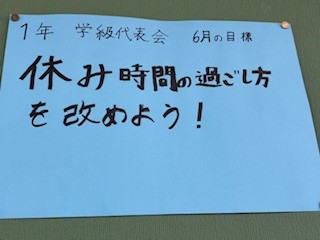 1年 学級代表会 6月の目標
休み時間の過ごし方
を改めよう!